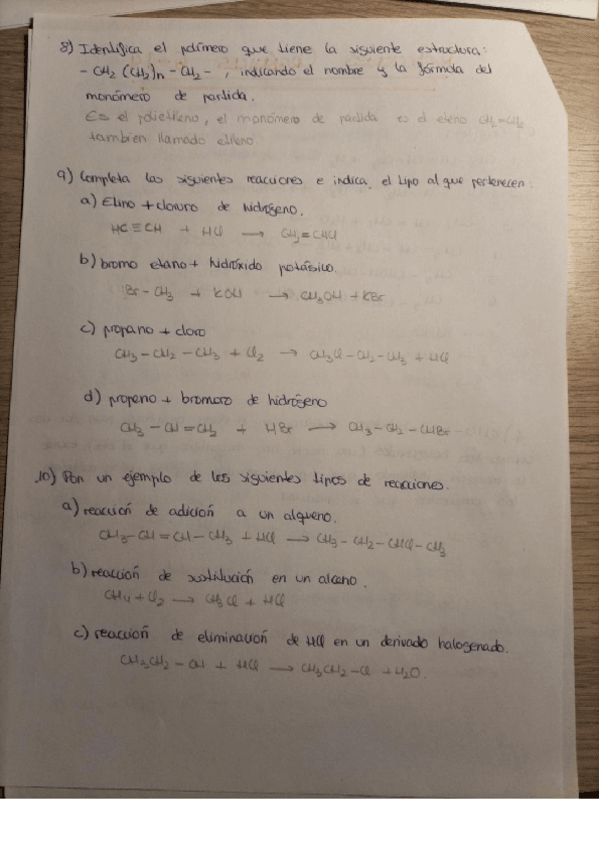 8) Identifica el polímero que tiene la siguiente estructura:
- CH2 (CH2)n - CH2 - , indicando el nombre y la fórmula del
monómero de partida.
Es el polietileno, el monómero de partida es el eteno CH2=CH2
también llamado etileno.
9) Completa las siguientes reacciones e indica el tipo al que pertenecen:
a) Etino + cloruro de hidrógeno.
HC≡CH + HCl → CH2=CHCl
b) bromo etano + hidróxido potásico.
Br-CH3 + KOH → CH3OH + KBr
c) propano + cloro
CH3-CH2-CH3 + Cl2 → CH3Cl-CH2-CH3 + HCl
d) propeno + bromuro de hidrógeno
CH3-CH=CH2 + HBr → CH3-CH2-CHBr
10) Pon un ejemplo de los siguientes tipos de reacciones.
a) reacción de adición a un alqueno.
CH3-CH=CH-CH3 + HCl → CH3-CH2-CHCl-CH3
b) reacción de sustitución en un alcano.
CH4 + Cl2 → CH3Cl + HCl
c) reacción de eliminación de HCl en un derivado halogenado.
CH3CH2-OH + HCl → CH3CH2-Cl + H2O.